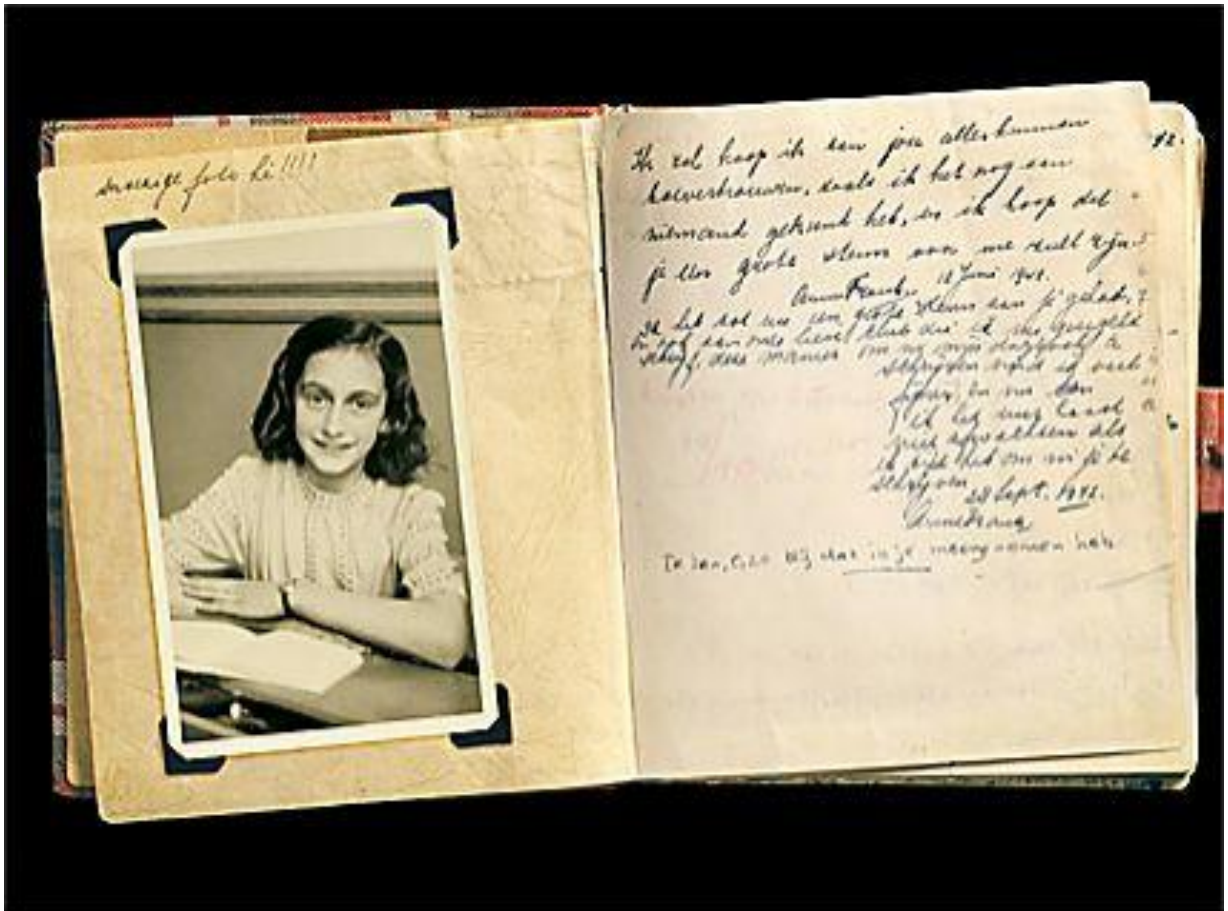 foto hè!!!!
12.
Ik zal hoop ik aan jou alles kunnen
toevertrouwen, zoals ik het nog aan
niemand gekund heb, en ik hoop dat
je een grote steun voor me zult zijn.
Anne Frank. 12 Juni 1942.
Ik heb tot nu een grote steun aan je gehad,
en ook aan onze lieve club die ik nu geregeld
schrijf, deze manier om in mijn dagboek te
schrijven vind ik veel
fijner en nu kan
ik het uur haast
niet afwachten als
ik tijd heb om in je te
schrijven.
28 Sept. 1942.
Anne Frank
Ik ben, o, zo blij dat ik je meegenomen heb